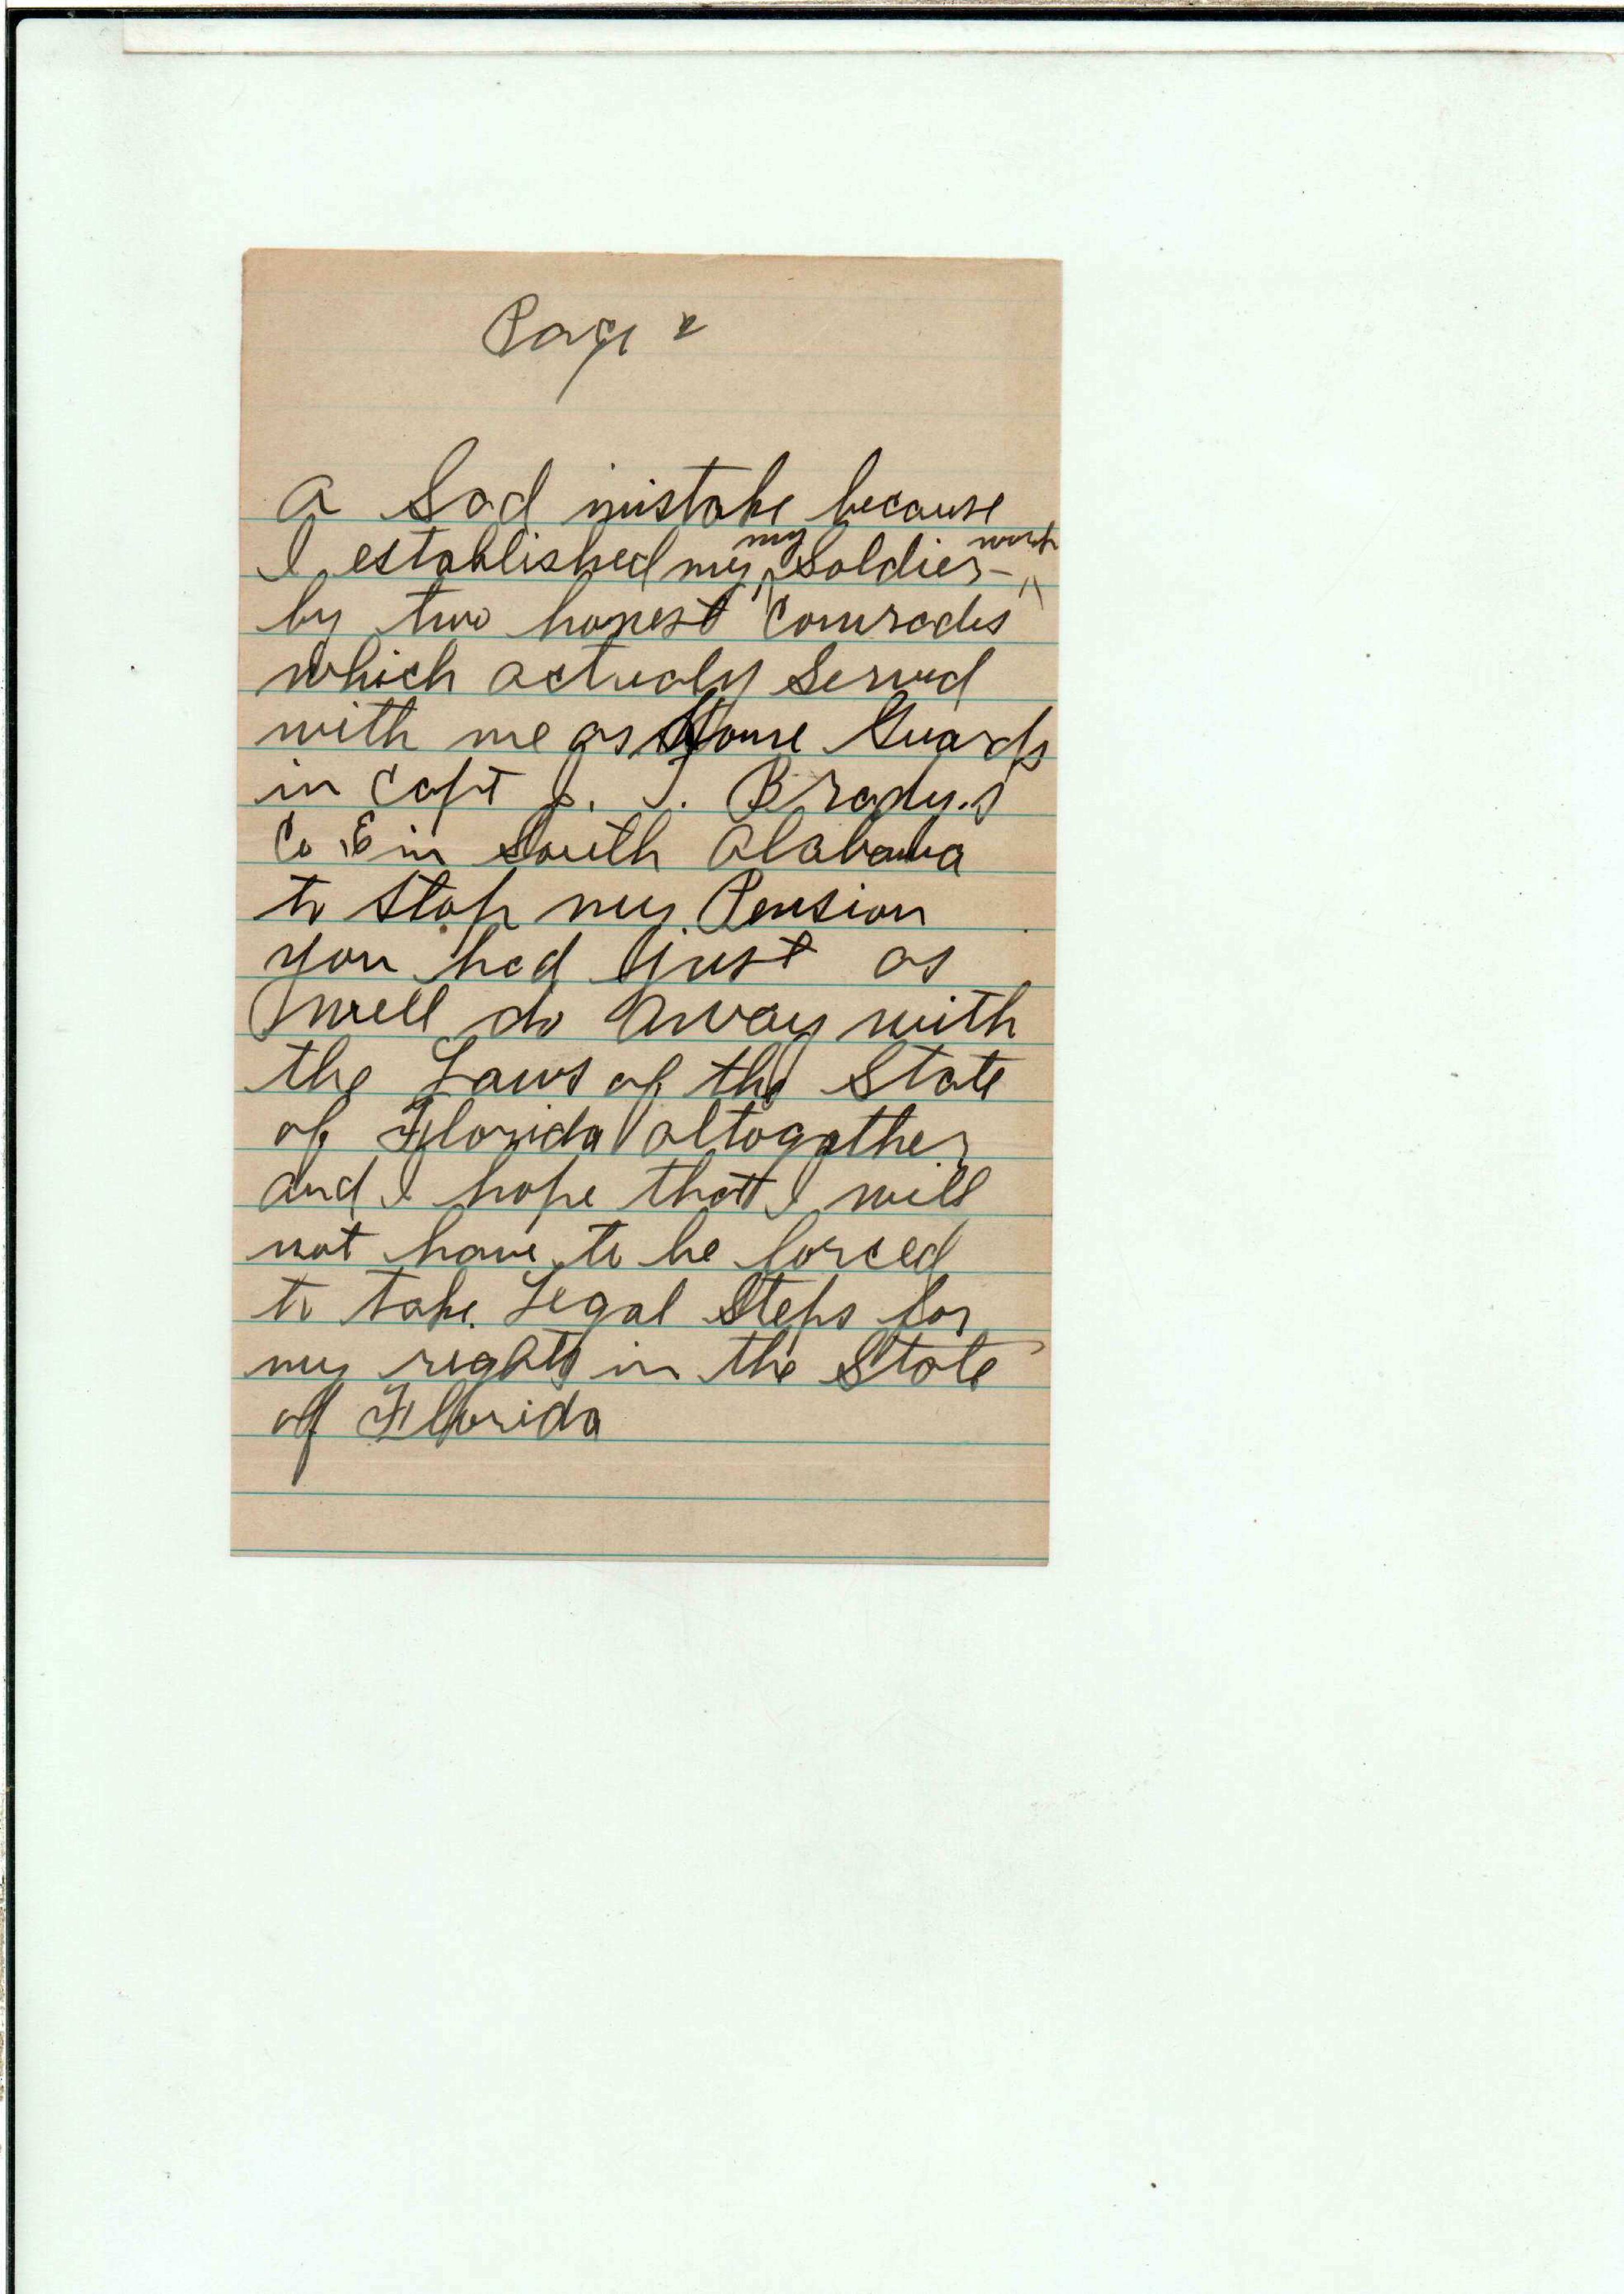 Page 2
a Sad mistake because
I established my my Soldier work
by two honest Comrades
which actualy Served
with me as Home Guards
in Capt J. T. Brady.s
Co E in South Alabama
to Stop my Pension
you had just as
well do away with
the Laws of the State
of Florida altogather
and I hope that I will
not have to be forced
to take Legal Steps for
my rights in the State
of Florida